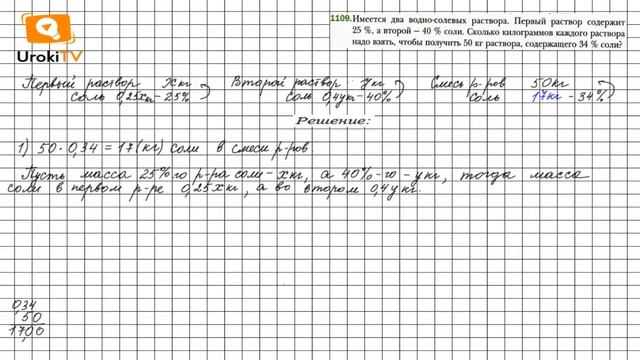 UrokiTV
1109. Имеется два водно-солевых раствора. Первый раствор содержит
25 %, а второй – 40 % соли. Сколько килограммов каждого раствора
надо взять, чтобы получить 50 кг раствора, содержащего 34 % соли?
Первый раствор x кг Второй раствор y кг Смесь р-ров 50 кг
соль 0,25x кг – 25% соль 0,4y кг – 40% соль 17 кг – 34%
Решение:
1) 50 · 0,34 = 17 (кг) соли в смеси р-ров.
Пусть масса 25%-го р-ра соли – x кг, а 40%-го – y кг, тогда масса
соли в первом р-ре 0,25x кг, а во втором 0,4y кг.
0,34
50
17,00